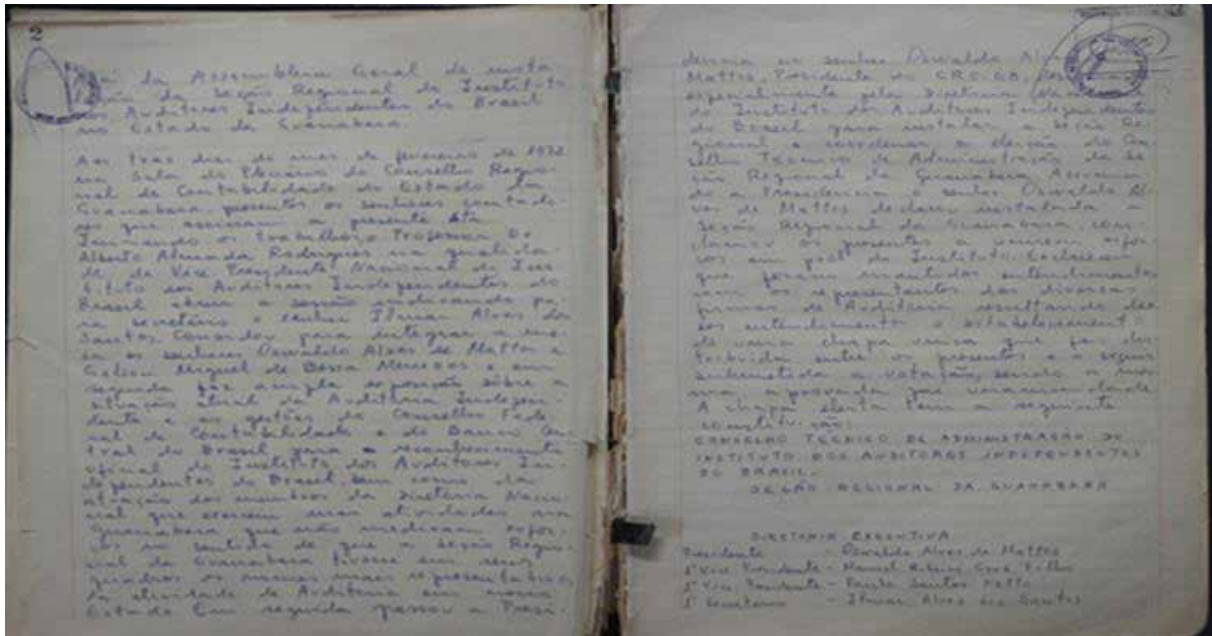 2
Ata da Assembleia Geral de insta
lação da Seção Regional do Instituto
dos Auditores Independentes do Brasil
no Estado da Guanabara.
Aos tres dias do mes de fevereiro de 1972
na Sala do Plenário do Conselho Regio-
nal de Contabilidade do Estado da
Guanabara, presentes os senhores contado-
res que assinam a presente Ata
Iniciando os trabalhos o Professor Dr
Alberto Almada Rodrigues na qualida
de de Vice Presidente Nacional do Ins
tituto dos Auditores Independentes do
Brasil abriu a sessão indicando pa
ra secretário o senhor Ilmar Alves dos
Santos, Convidou para integrar a me-
sa os senhores Oswaldo Alves de Mattos e
Gelson Miguel de Bessa Menezes e em
seguida fez ampla exposição sôbre a
situação atual da Auditoria Indepen-
dente e as gestões do Conselho Fede
ral de Contabilidade e do Banco Cen
tral do Brasil para o reconhecimento
oficial do Instituto dos Auditores In-
dependentes do Brasil bem como da
atuação dos membros da Diretoria Nacio-
nal que exercem suas atividades na
Guanabara que não mediram esfor-
ços no sentido de que a Seção Regio-
nal da Guanabara tivesse em seus
quadros os nomes mais representativos
da atividade de Auditoria em nosso
Estado Em seguida passou a Presi-
dencia ao senhor Oswaldo Alves
Mattos, Presidente do CRC-GB,
especialmente pela Diretoria
do Instituto dos Auditores Independentes
do Brasil para instalar a Seção Re-
gional e coordenar a eleição do Con
selho Tecnico de Administração da Se
ção Regional da Guanabara Assumin
do a Presidencia o senhor Oswaldo Al-
ves de Mattos declarou instalada a
Seção Regional da Guanabara, con-
clamou os presentes a unirem esfor
ços em prol do Instituto. Esclareceu
que foram mantidos entendimentos
com os representantes das diversas
firmas de Auditoria resultando des
ses entendimentos o estabelecimento
de uma chapa unica que foi dis
tribuida entre os presentes e a seguir
submetida a votação, sendo a mes
ma aprovada por unanimidade
A chapa eleita tem a seguinte
constituição:
CONSELHO TECNICO DE ADMINISTRAÇÃO DO
INSTITUTO DOS AUDITORES INDEPENDENTES
DO BRASIL.
SEÇÃO REGIONAL DA GUANABARA
DIRETORIA EXECUTIVA
Presidente - Oswaldo Alves de Mattos
1º Vice Presidente - Manoel Ribeiro Filho
Vice Presidente - Santos Netto
1º Secretario - Ilmar Alves dos Santos